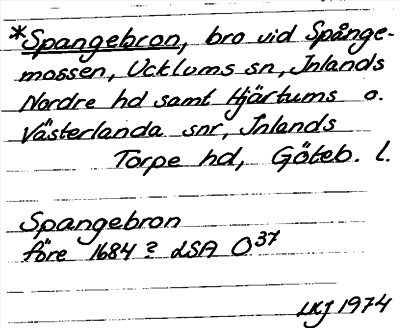 *Spangebron, bro vid Spånge-
mossen, Ucklums sn, Inlands
Nordre hd samt Hjärtums o.
Västerlanda snr, Inlands
Torpe hd, Göteb. l.
Spangebron
före 1684? LSA O37
LKJ 1974